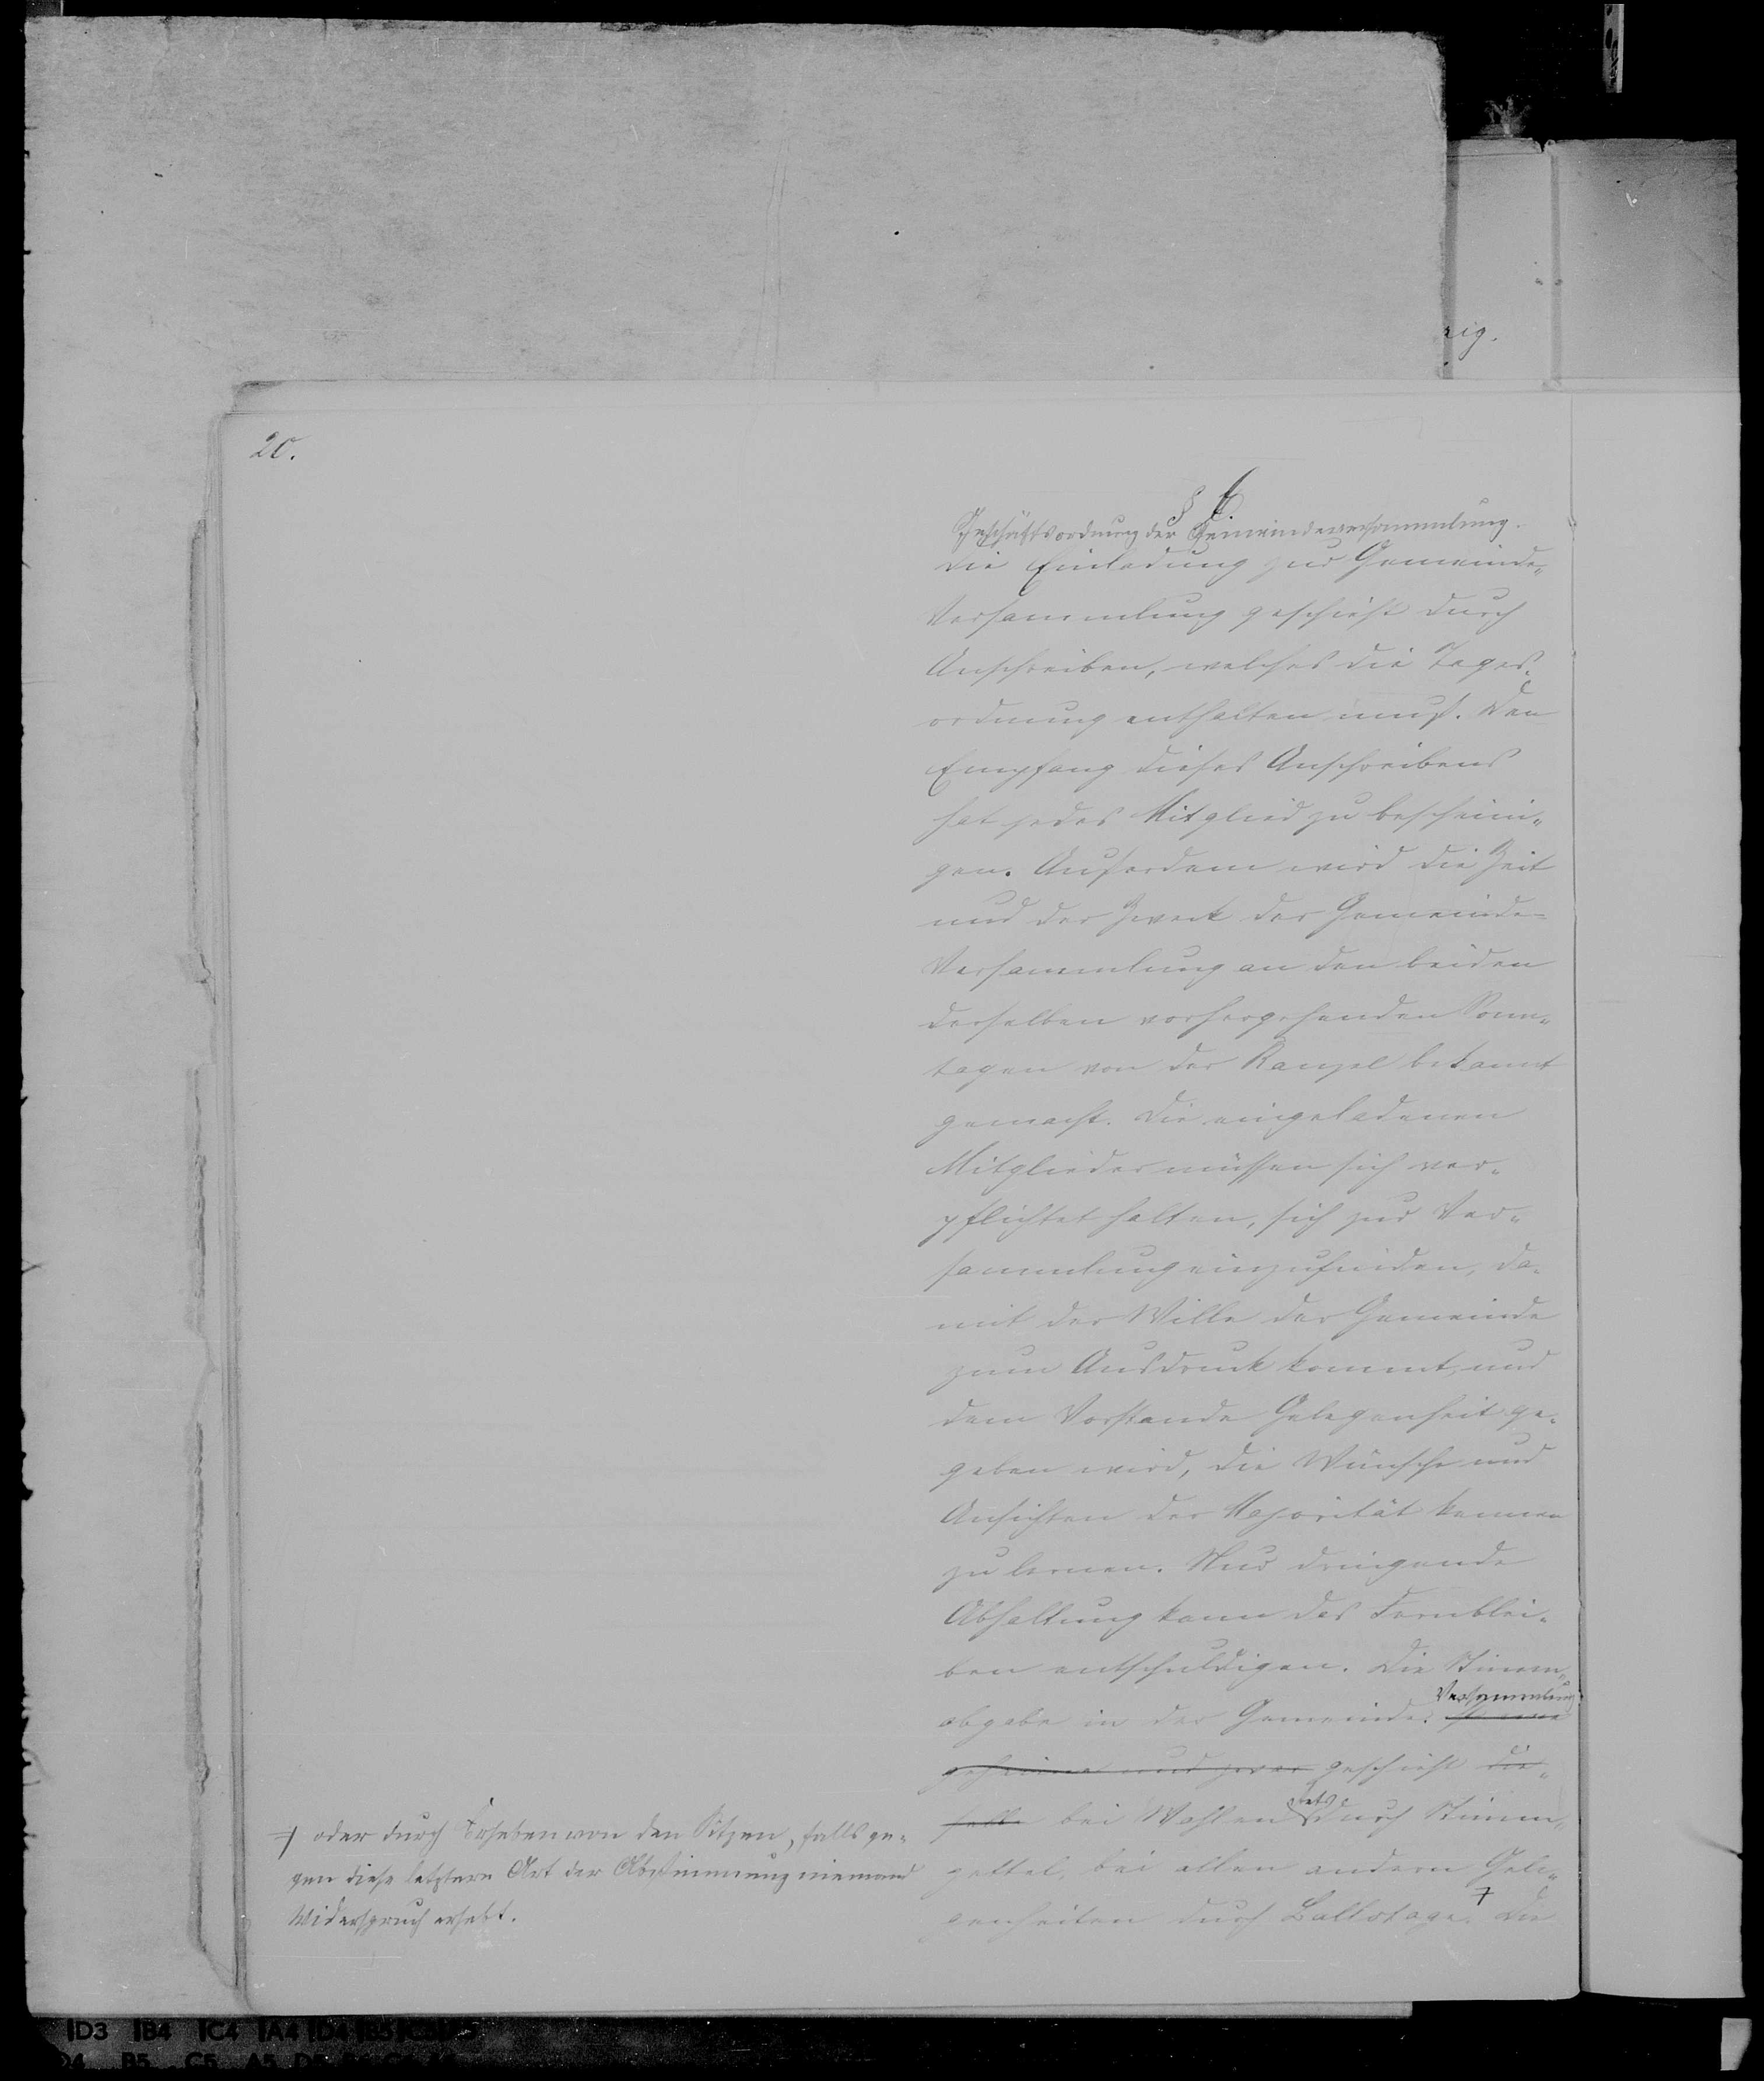 rig.
20.
§ 6.
Geschäftsordnung der Gemeindeversammlung.
Die Einladung zur Gemeinde„
Versammlung geschieht durch
Anschreiben, welches die Tages„
ordnung enthalten muß. Den
Empfang dieses Anschreibens
hat jedes Mitglied zu bescheini„
gen. Außerdem wird die Zeit
und der Zweck der Gemeinde-
Versammlung an den beiden
derselben vorhergehenden Sonn„
tagen von der Kanzel bekannt
gemacht. Die eingeladenen
Mitglieder müssen sich ver„
pflichtet halten, sich zur Ver„
sammlung einzufinden, da„
mit der Wille der Gemeinde
zum Ausdruck kommt, und
dem Vorstande Gelegenheit ge„
geben wird, die Wünsche und
Ansichten der Majorität kennen
zu lernen. Nur dringende
Abhaltung kann das Fernblei„
ben entschuldigen. Die Stimm„
Versammlung
abgabe in der Gemeinde„
geheime und zwar geschieht die„
stets
selbe bei Wahlen durch Stimm„
zettel, bei allen andern Gele„
genheiten durch Ballotage. Die
oder durch Erheben von den Sitzen, falls ge„
gen diese letztere Art der Abstimmung niemand
Widerspruch erhebt.
D3 B4 C4 A4 D4 B5
B5 C5 A5